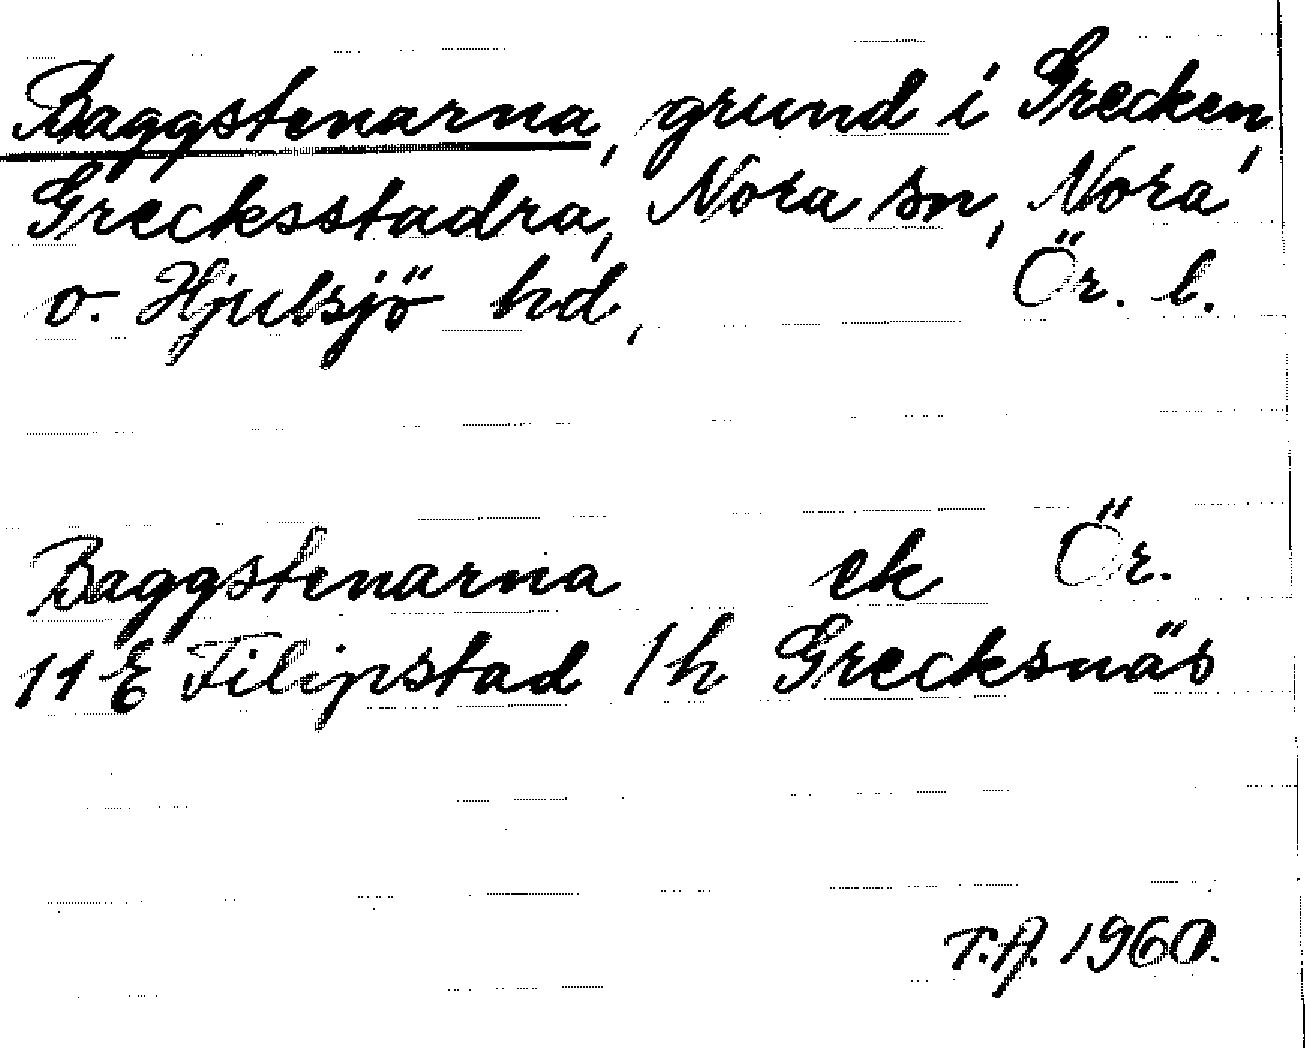 Baggstenarna, grund i Grecken,
Grecksstadra, Nora sn, Nora
o. Hjulsjö hd, Ör. l.
Baggstenarna ek Ör.
11 E Filipstad 1 h Grecksnäs
T.A. 1960.